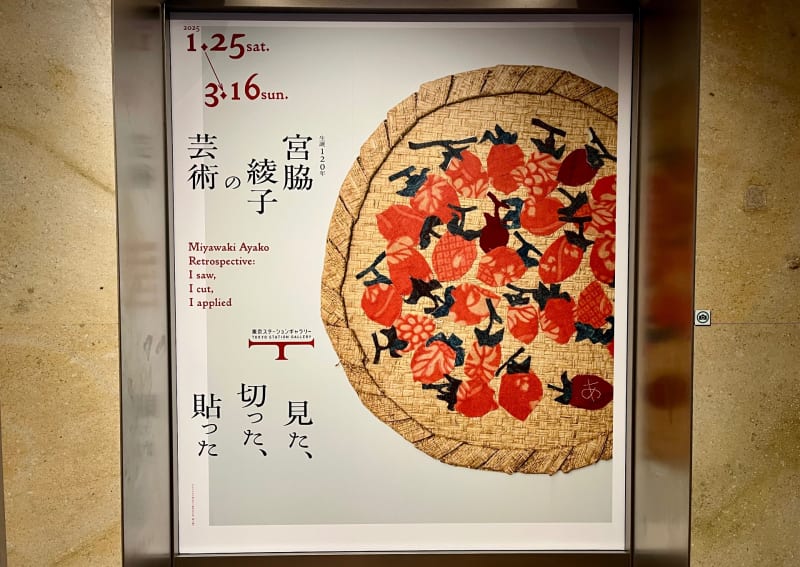 2025
1.25sat.
3.16sun.
生誕120年
宮脇
綾子
の
芸術
Miyawaki Ayako
Retrospective:
I saw,
I cut,
I applied
東京ステーションギャラリー
TOKYO STATION GALLERY
見た、
切った、
貼った
あ